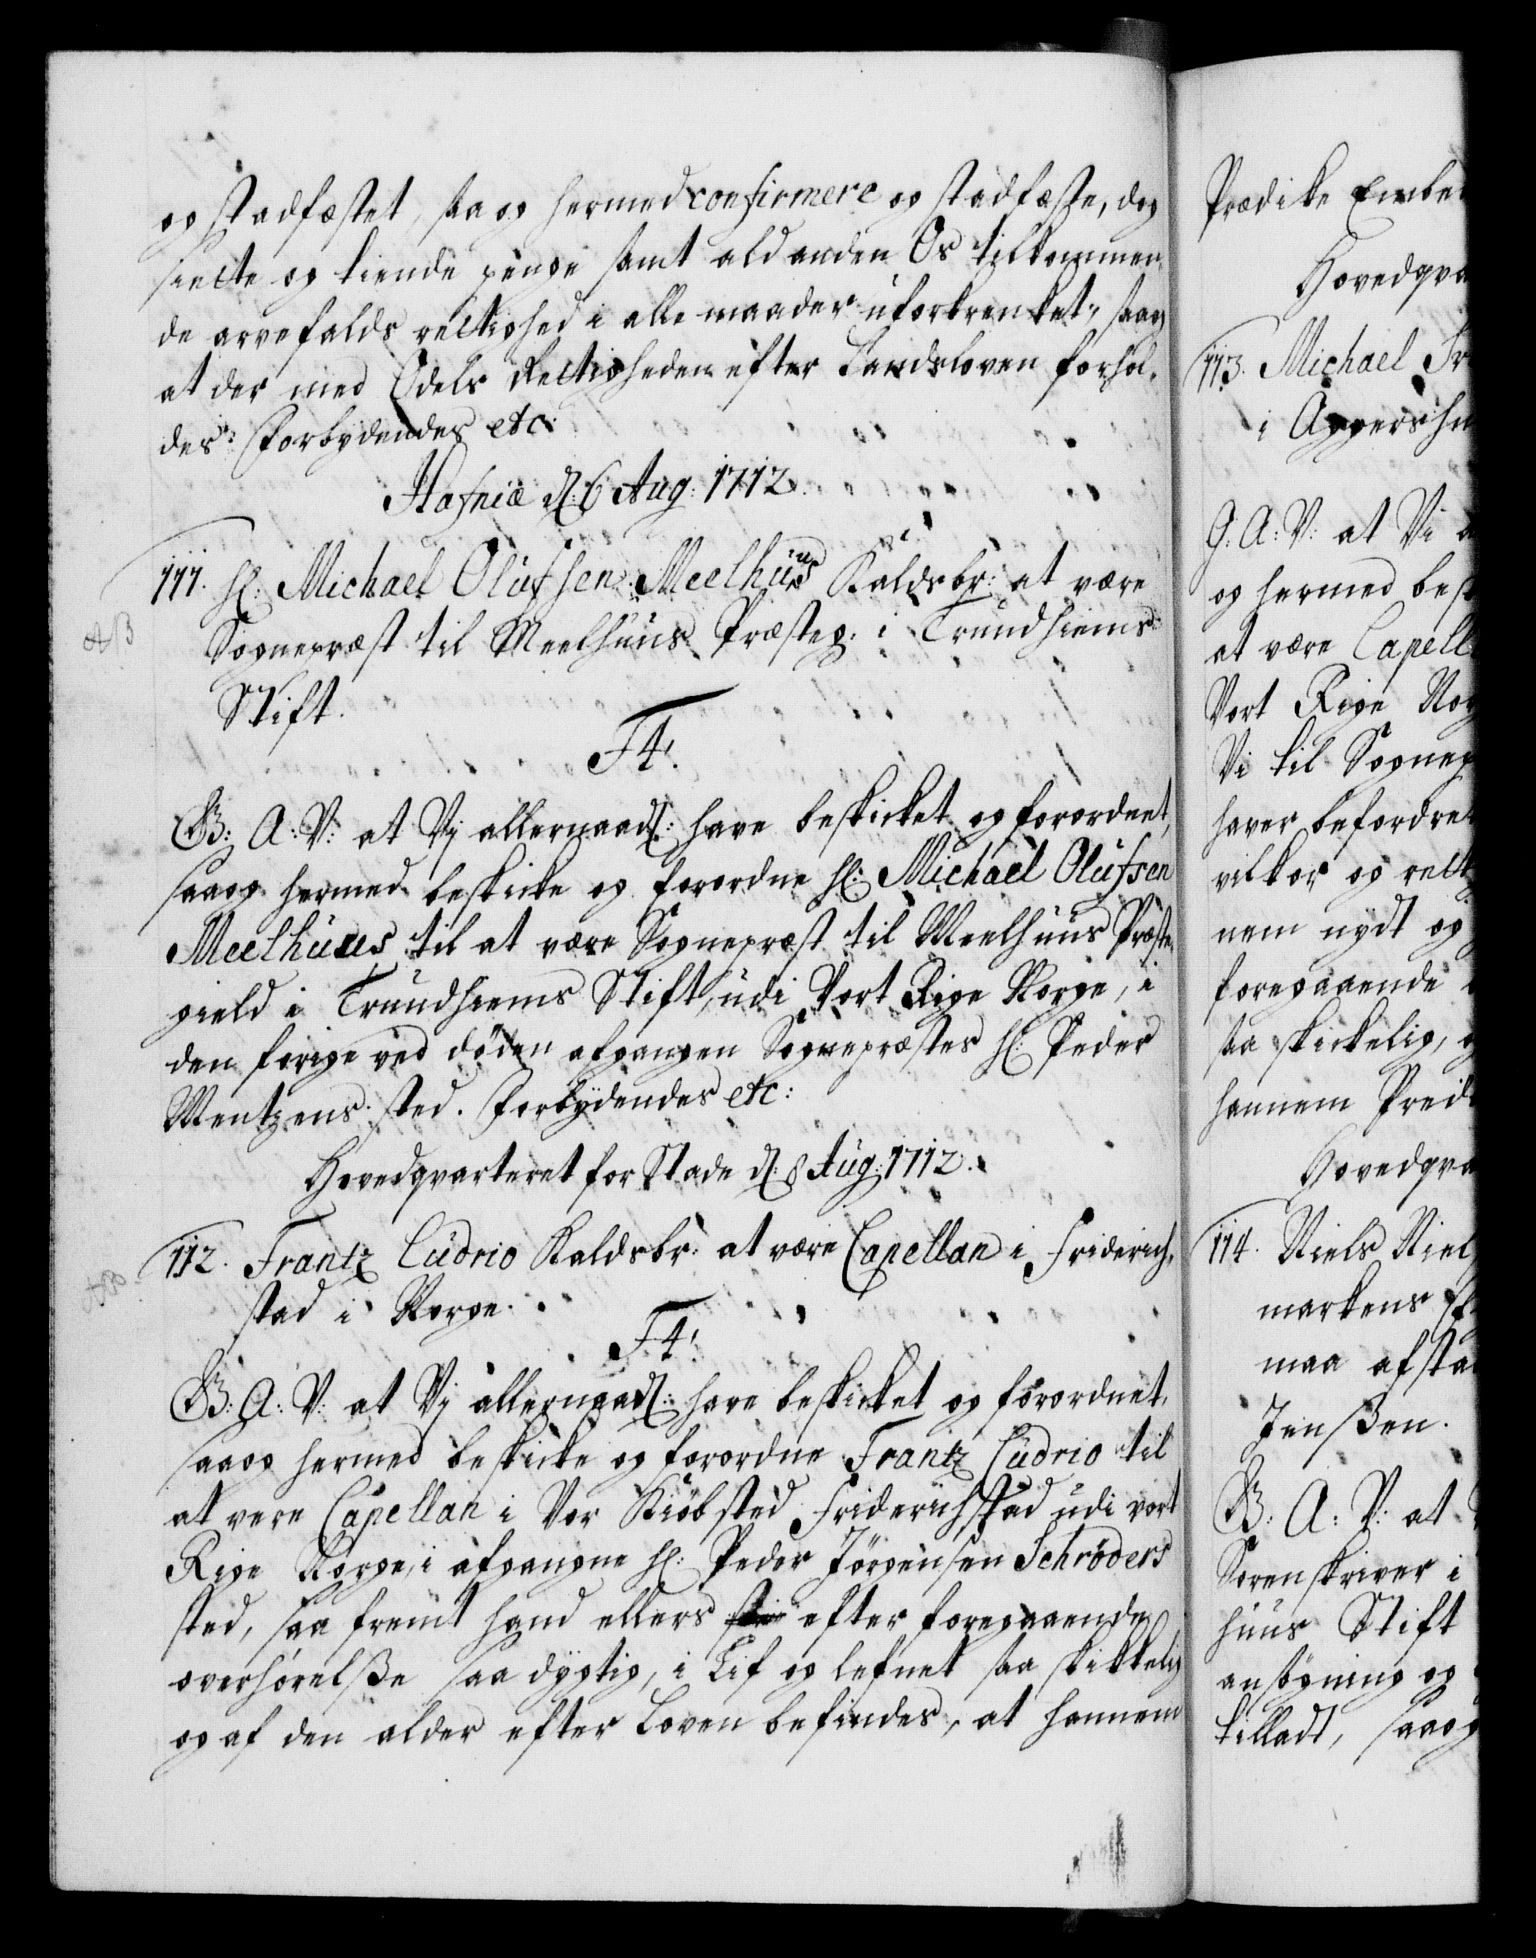 og stadfæstet, saa og hermed confirmere og stadfæste, dog
siette og tiende penge samt ald anden Os tilkommen,
de arvefalds rettighed i alle maader uforkrenket, saa og
at der med Odels Rettigheden efter Landsloven forhol,
des: Forbydendes etc:
Hafniæ d: 6 Aug: 1712.
111. Hr: Michael Olufsen Meelhuus Kaldsbr: at være
Sognepræst til Meelhuus Præsteg: i Trundhiems
Stift.
F4!
G: A: V: at Vj allernaad: have beskicket og forordnet,
saa og hermed beskicke og forordne Hr: Michael Olufsen
Meelhuus til at være Sognepræst til Meelhuus Præste
gield i Trundhiems Stift, udi Vort Rige Norge, i
den forige ved døden afgangen Sognepræstes Hr: Peder
Mentzens sted. Forbydendes etc:
Hovedqvarteret for Stade d: 8 Aug: 1712.
112. Frantz Cudrio Kaldsbr: at være Capellan i Friderich,
stad i Norge.
F4!
G: A: V: at Vj allernaad: have beskicket og forordnet,
saa og hermed beskicke og forordne Frantz Cudrio til
at vere Capellan i Vor Kiøbsted Friderichstad udi vort
Rige Norge, i afgangne Hr: Peder Jørgensen Schrøders
sted, saa fremt hand ellers efter foregaaende
overhørelße saa dygtig, i Lif og lefnet saa skikkelig
og af den alder efter Loven befindes, at hannem
Prædike Embe
Hovedqva
113. Michael Fr
i Aggershu
G: A: V: at Vi
og hermed besk
at være Capell
Vort Rige Nor
Vi til Sognep
haver befordret
vilkor og rett
nem nydt og
foregaaende
saa skickelig, o
hannem Predi
Hovedqva
114. Niels Niel
markens
maa afsta
Jenßen.
G: A: V: at
Sorenskriver i
huus Stift
ansøgning og
tilladt, saa og